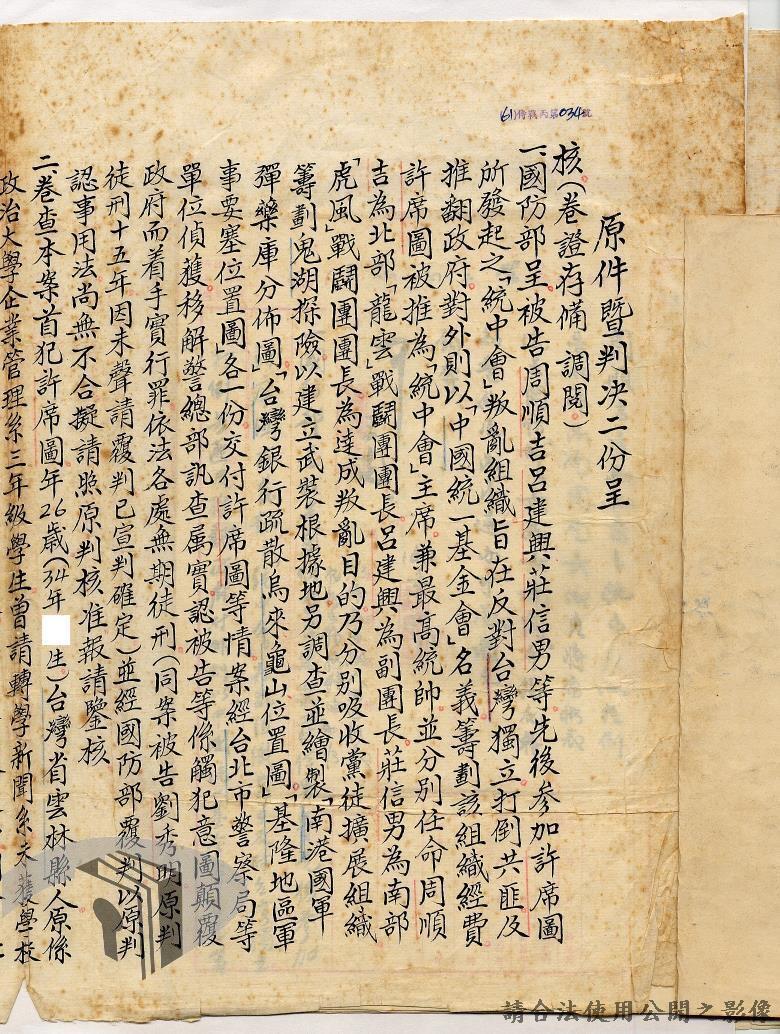 (61)侍戰丙第034號
原件暨判決二份呈
核(卷證存備 調閱)
一、國防部呈:被告周順吉呂建興莊信男等先後參加許席圖
所發起之「統中會」叛亂組織旨在反對台灣獨立打倒共匪及
推翻政府。對外則以「中國統一基金會」名義籌劃該組織經費
許席圖被推為「統中會」主席兼最高統帥並分別任命周順
吉為北部「龍雲」戰鬪團團長呂建興為副團長莊信男為南部
「虎風」戰鬪團團長為達成叛亂目的乃分別吸收黨徒擴展組織
籌劃鬼湖探險以建立武裝根據地另調查並繪製「南港國軍
彈藥庫分佈圖」「台灣銀行疏散烏來龜山位置圖」「基隆地區軍
事要塞位置圖」各一份交付許席圖等情案經台北市警察局等
單位偵獲移解警總部訊查屬實認被告等係觸犯意圖顛覆
政府而着手實行罪依法各處無期徒刑(同案被告劉秀明原判
徒刑十五年因未聲請覆判已宣判確定)並經國防部覆判以原判
認事用法尚無不合擬請照原判核准報請鑒核
二、卷查本案首犯許席圖年26歲(34年 生)台灣省雲林縣人原係
政治大學企業管理系三年級學生曾請轉學新聞系未獲學校
請合法使用公開之影像